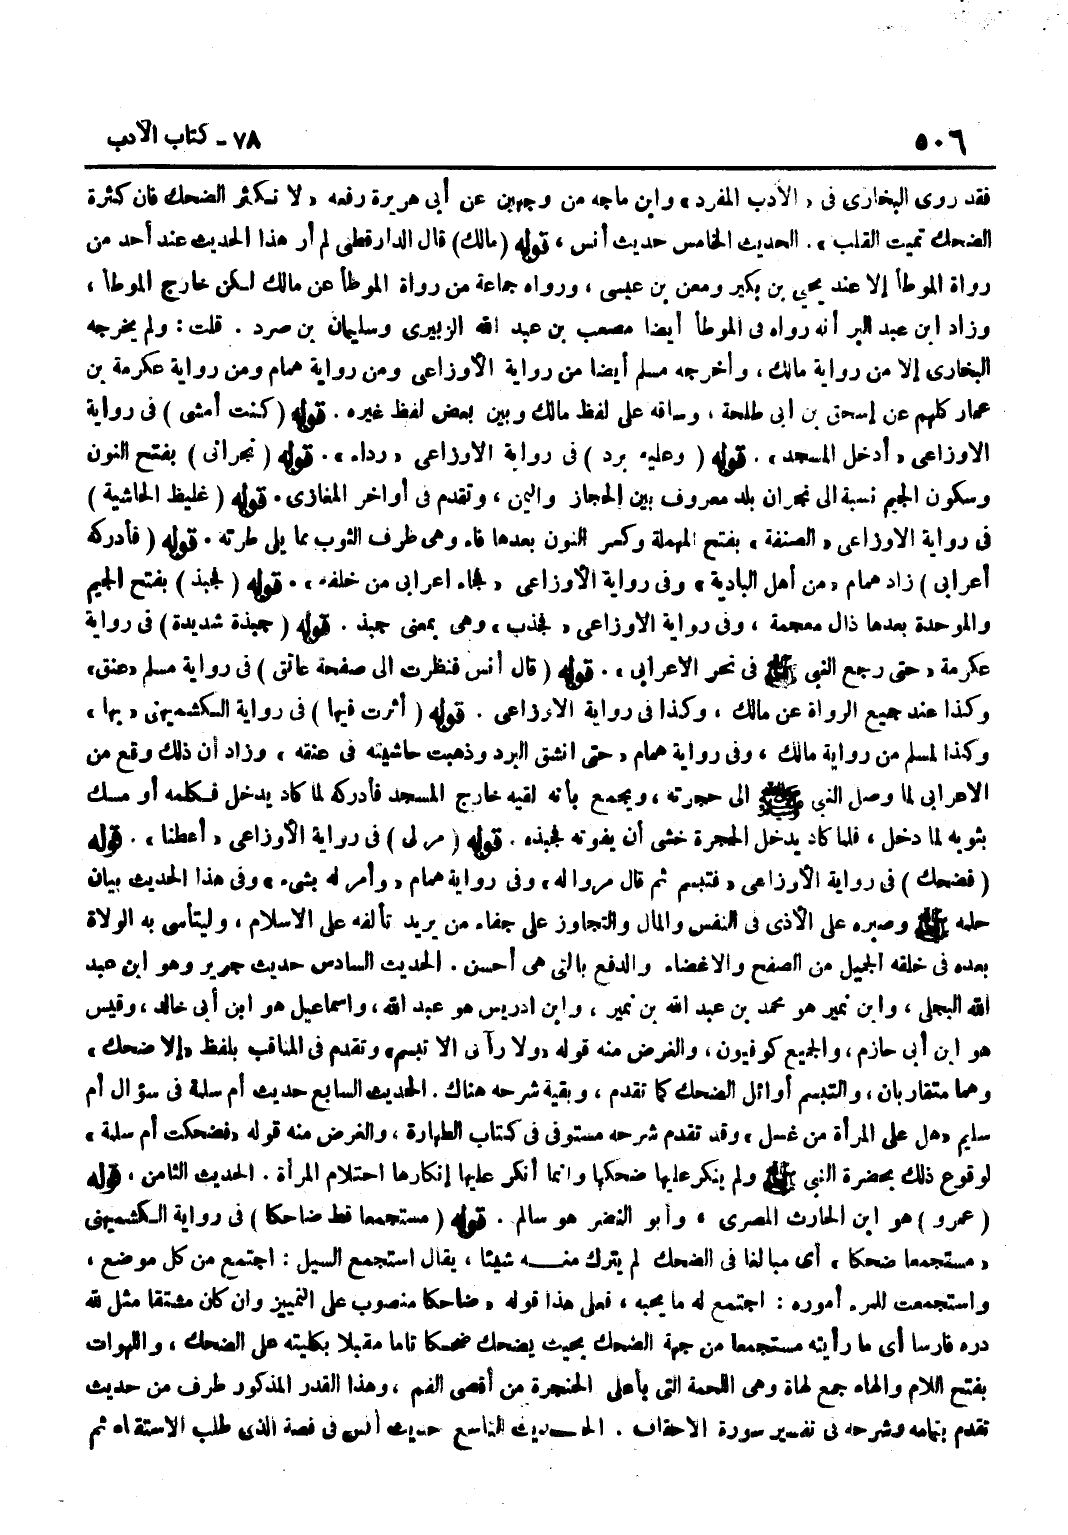 ٥٠٦ ٧٨ - كتاب الأدب
فقد روى البخارى فى « الأدب المفرد » وابن ماجه من وجهين عن أبى هريرة رفعه « لا تكثر الضحك فان كثرة
الضحك تميت القلب » . الحديث الخامس حديث أنس ، قوله ( مالك ) قال الدارقطنى لم أر هذا الحديث عند أحد من
رواة الموطأ إلا عند يحيى بن بكير ومعن بن عيسى ، ورواه جماعة من رواة الموطأ عن مالك لكن خارج الموطأ ،
وزاد ابن عبد البر أنه رواه فى الموطأ أيضا مصعب بن عبد الله الزبيرى وسليمان بن صرد . قلت : ولم يخرجه
البخارى إلا من رواية مالك ، وأخرجه مسلم أيضا من رواية الأوزاعى ومن رواية همام ومن رواية عكرمة بن
عمار كلهم عن إسحق بن ابى طلحة ، وساقه على لفظ مالك وبين بعض لفظ غيره . قوله ( كنت أمشى ) فى رواية
الاوزاعى « أدخل المسجد » . قوله ( وعليه برد ) فى رواية الأوزاعى « رداء » . قوله ( نجرانى ) بفتح النون
وسكون الجيم نسبة الى نجران بلد معروف بين الحجاز واليمن ، وتقدم فى أواخر المغازى . قوله ( غليظ الحاشية )
فى رواية الاوزاعى « الصنفة » بفتح المهملة وكسر النون بعدها فاء وهى طرف الثوب مما يلى طرته . قوله ( فأدركه
أعرابى ) زاد همام « من أهل البادية » وفى رواية الأوزاعى « فجاء اعرابى من خلفه » . قوله ( فجبذ ) بفتح الجيم
والموحدة بعدها ذال معجمة ، وفى رواية الاوزاعى « فجذب » وهى بمعنى جبذ . قوله ( جبذة شديدة ) فى رواية
عكرمة « حتى رجع النبى ﷺ فى نحر الاعرابى » . قوله ( قال أنس فنظرت الى صفحة عاتق ) فى رواية مسلم « عنق »
وكذا عند جميع الرواة عن مالك ، وكذا فى رواية الاوزاعى . قوله ( أثرت فيها ) فى رواية الكشميهنى « بها »
وكذا لمسلم من رواية مالك ، وفى رواية همام « حتى انشق البرد وذهبت حاشيته فى عنقه » وزاد أن ذلك وقع من
الاعرابى لما وصل النبى ﷺ الى حجرته ، ويجمع بأنه لقيه خارج المسجد فأدركه لما كاد يدخل فكلمه أو مسك
بثوبه لما دخل ، فلما كاد يدخل الحجرة خشى أن يفوته فجبذه . قوله ( مر لى ) فى رواية الأوزاعى « أعطنا » . قوله
( فضحك ) فى رواية الأوزاعى « فتبسم ثم قال مروا له » وفى رواية همام « وأمر له بشىء » وفى هذا الحديث بيان
حلمه ﷺ وصبره على الأذى فى النفس والمال والتجاوز على جفاء من يريد تألفه على الاسلام ، وليتأسى به الولاة
بعده فى خلقه الجميل من الصفح والاغضاء والدفع بالتى هى أحسن . الحديث السادس حديث جرير وهو ابن عبد
الله البجلى ، وابن نمير هو محمد بن عبد الله بن نمير ، وابن ادريس هو عبد الله ، واسماعيل هو ابن أبى خالد ، وقيس
هو ابن أبى حازم ، والجميع كوفيون ، والغرض منه قوله « ولا رآنى الا تبسم » وتقدم فى المناقب بلفظ « إلا ضحك »
وهما متقاربان ، والتبسم أوائل الضحك كما تقدم ، وبقية شرحه هناك . الحديث السابع حديث أم سلمة فى سؤال أم
سليم « هل على المرأة من غسل » وقد تقدم شرحه مستوفى فى كتاب الطهارة ، والغرض منه قوله « فضحكت أم سلمة »
لوقوع ذلك بحضرة النبى ﷺ ولم ينكر عليها ضحكها وانما أنكر عليها إنكارها احتلام المرأة . الحديث الثامن ، قوله
( عمرو ) هو ابن الحارث المصرى ، وأبو النضر هو سالم . قوله ( مستجمعا قط ضاحكا ) فى رواية الكشميهنى
« مستجمعا ضحكا » أى مبالغا فى الضحك لم يترك منه شيئا ، يقال استجمع السيل : اجتمع من كل موضع ،
واستجمعت للمرء أموره : اجتمع له ما يحبه ، فعلى هذا قوله « ضاحكا منصوب على التمييز وان كان مشتقا مثل لله
دره فارسا أى ما رأيته مستجمعا من جهة الضحك بحيث يضحك ضحكا تاما مقبلا بكليته على الضحك ، واللهوات
بفتح اللام والهاء جمع لهاة وهى اللحمة التى بأعلى الحنجرة من أقصى الفم ، وهذا القدر المذكور طرف من حديث
تقدم بتمامه وشرحه فى تفسير سورة الاحقاف . الحديث التاسع حديث أنس فى قصة الذى طلب الاستسقاء ثم